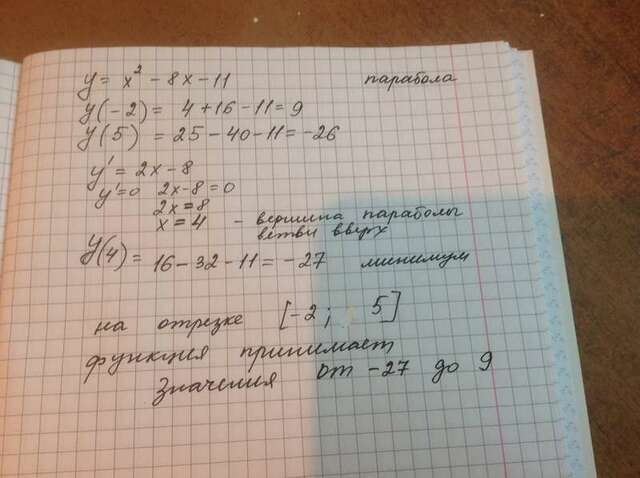 y = x² - 8x - 11 парабола
y(-2) = 4 + 16 - 11 = 9
y(5) = 25 - 40 - 11 = -26
y' = 2x - 8
y' = 0 2x - 8 = 0
2x = 8
x = 4 - вершина параболы
ветви вверх
y(4) = 16 - 32 - 11 = -27 минимум
на отрезке [-2; 5]
функция принимает
значения от -27 до 9